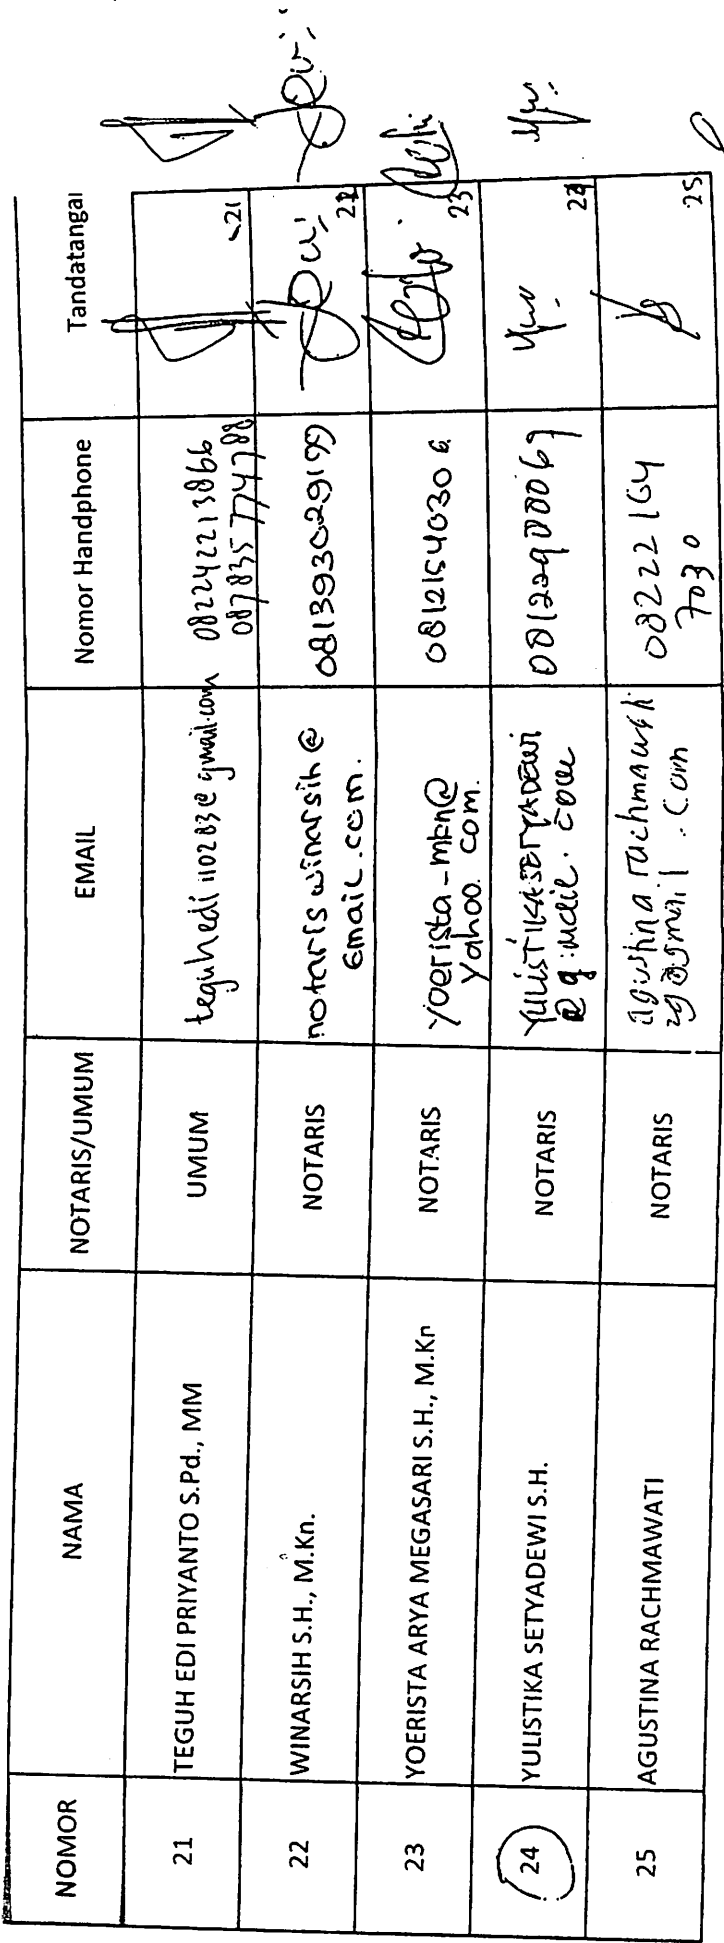 NOMOR NAMA NOTARIS/UMUM EMAIL Nomor Handphone Tandatangai
21 TEGUH EDI PRIYANTO S.Pd., MM UMUM teguhedi110283@gmail.com 082242213866
087835774788
21
22 WINARSIH S.H., M.Kn. NOTARIS notariswinarsih@ 081393029199 22
Gmail.com.
23 YOERISTA ARYA MEGASARI S.H., M.Kn NOTARIS yoerista_mkn@ 08121540306 23
yahoo.com.
24 YULISTIKA SETYADEWI S.H. NOTARIS YULISTIKASETYADEWI 24
25 AGUSTINA RACHMAWATI NOTARIS agustina rachmawati 08222164 25
7030